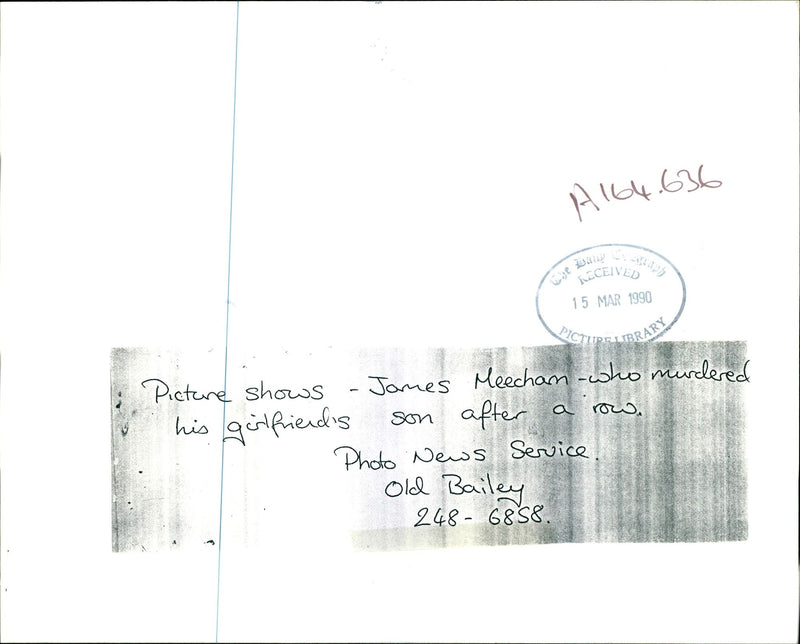 A164.636
The Daily Telegraph
RECEIVED
15 MAR 1990
PICTURE LIBRARY
Picture shows - James Meecham - who murdered
his girlfriend's son after a row.
Photo News Service.
Old Bailey
248 - 6858.